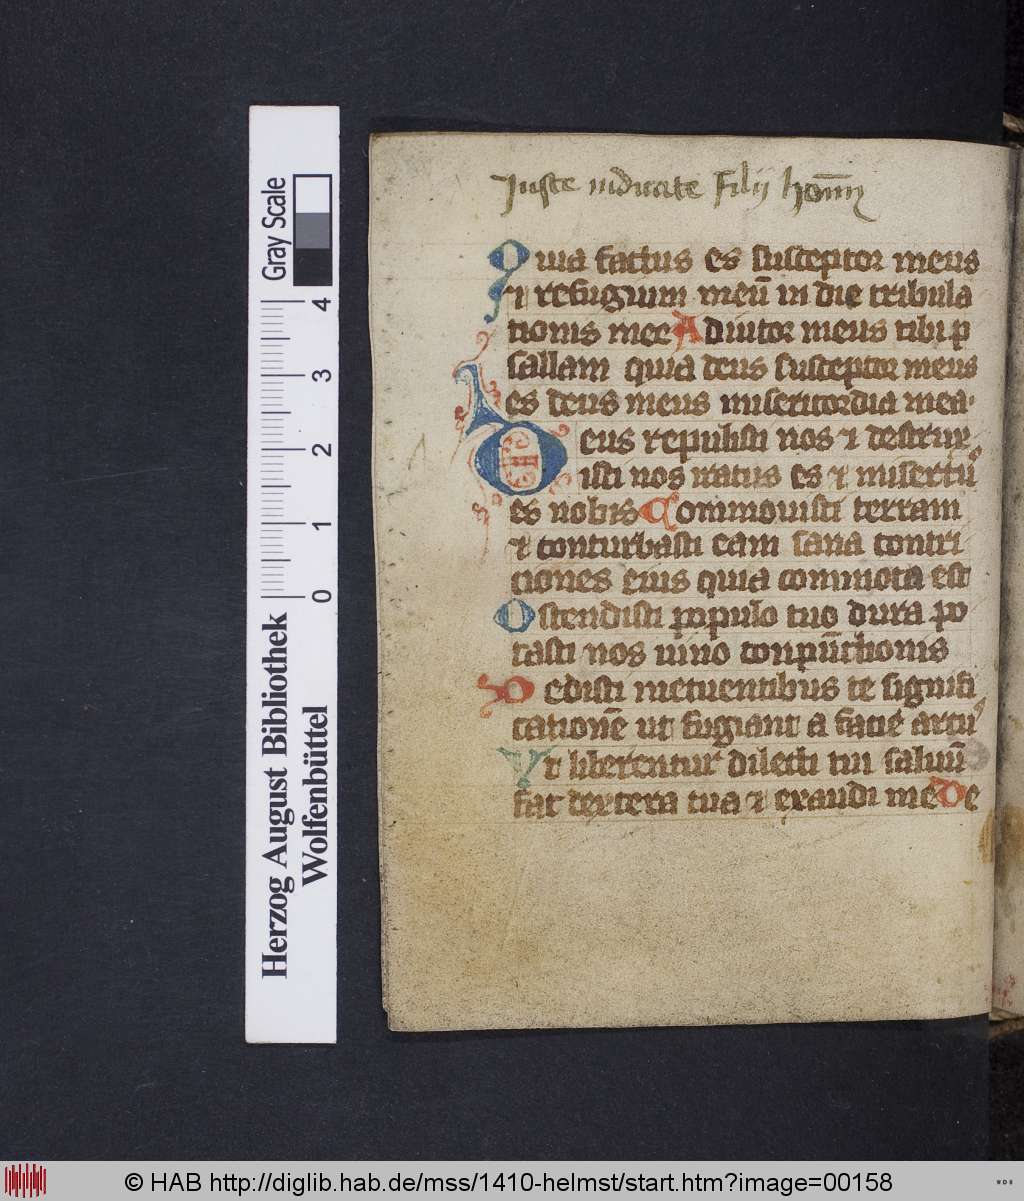 Iuste iudicate Filij homī
Quia factus es susceptor meus
⁊ refugium meū in die tribula
tionis mee Adiutor meus tibi p
sallam quia deus susceptor meus
es deus meus misericordia mea·
Deus repulisti nos ⁊ destrux
isti nos iratus es ⁊ misertu᷒
es nobis Commouisti terram
⁊ conturbasti eam sana contri
ciones eius quia commota est
Ostendisti populo tuo dura po
tasti nos uino conpūctionis
Dedisti metuentibus te signifi
cationē ut fugiant a facie arcu᷒
Vt liberentur dilecti tui saluū
fac dextera tua ⁊ exaudi me De
Gray Scale
4
3
2
1
0
Herzog August Bibliothek
Wolfenbüttel
© HAB http://diglib.hab.de/mss/1410-helmst/start.htm?image=00158